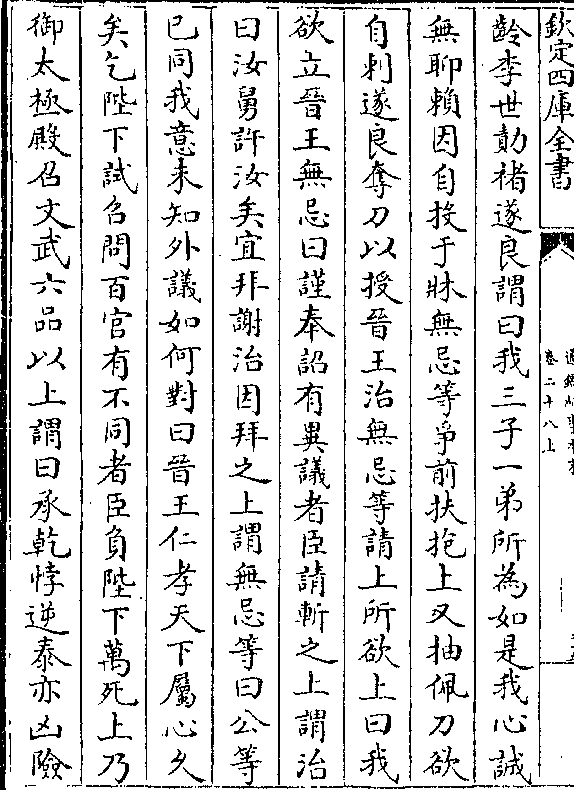 欽定四庫全書
卷二十八上
齡李世勣褚遂良謂曰我三子一弟所為如是我心誠
無聊賴因自投于牀無忌等爭前扶抱上又抽佩刀欲
自刺遂良奪刀以授晉王治無忌等請上所欲上曰我
欲立晉王無忌曰謹奉詔有異議者臣請斬之上謂治
曰汝舅許汝矣宜拜謝治因拜之上謂無忌等曰公等
已同我意未知外議如何對曰晉王仁孝天下屬心久
矣乞陛下試召問百官有不同者臣負陛下萬死上乃
御太極殿召文武六品以上謂曰承乾悖逆泰亦凶險